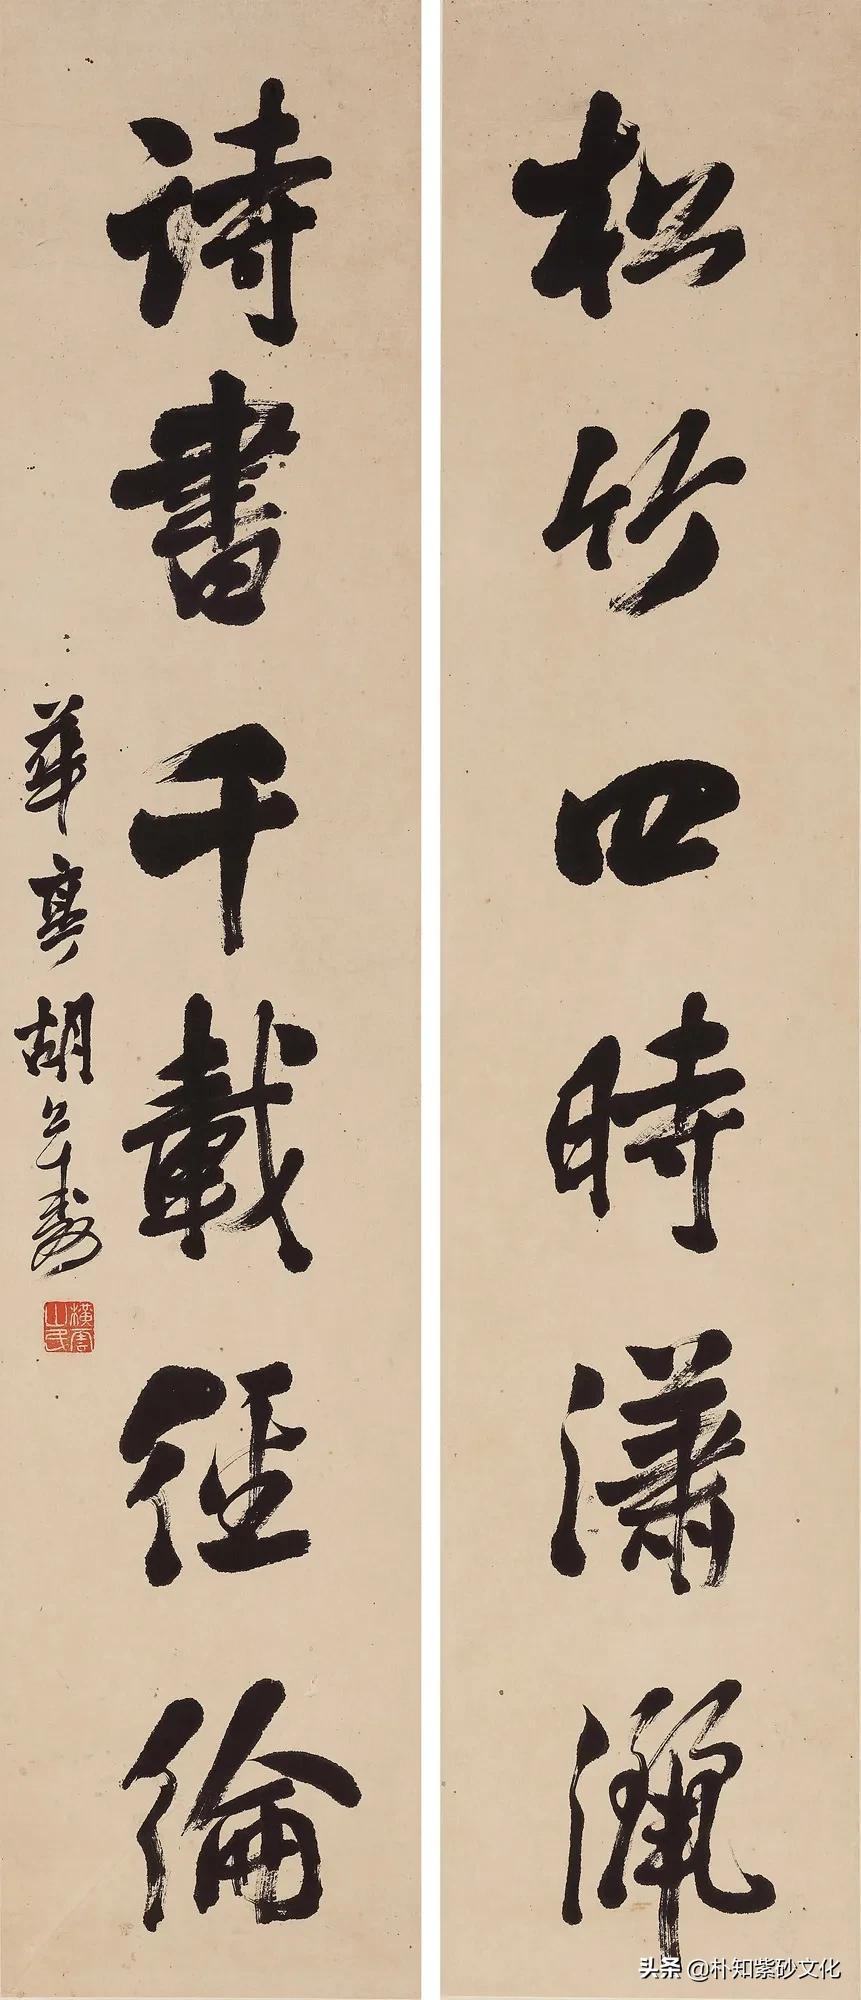 松竹四時瀟灑
詩書千載經綸
華亭胡公壽
橫雲山民
头条 @朴知紫砂文化